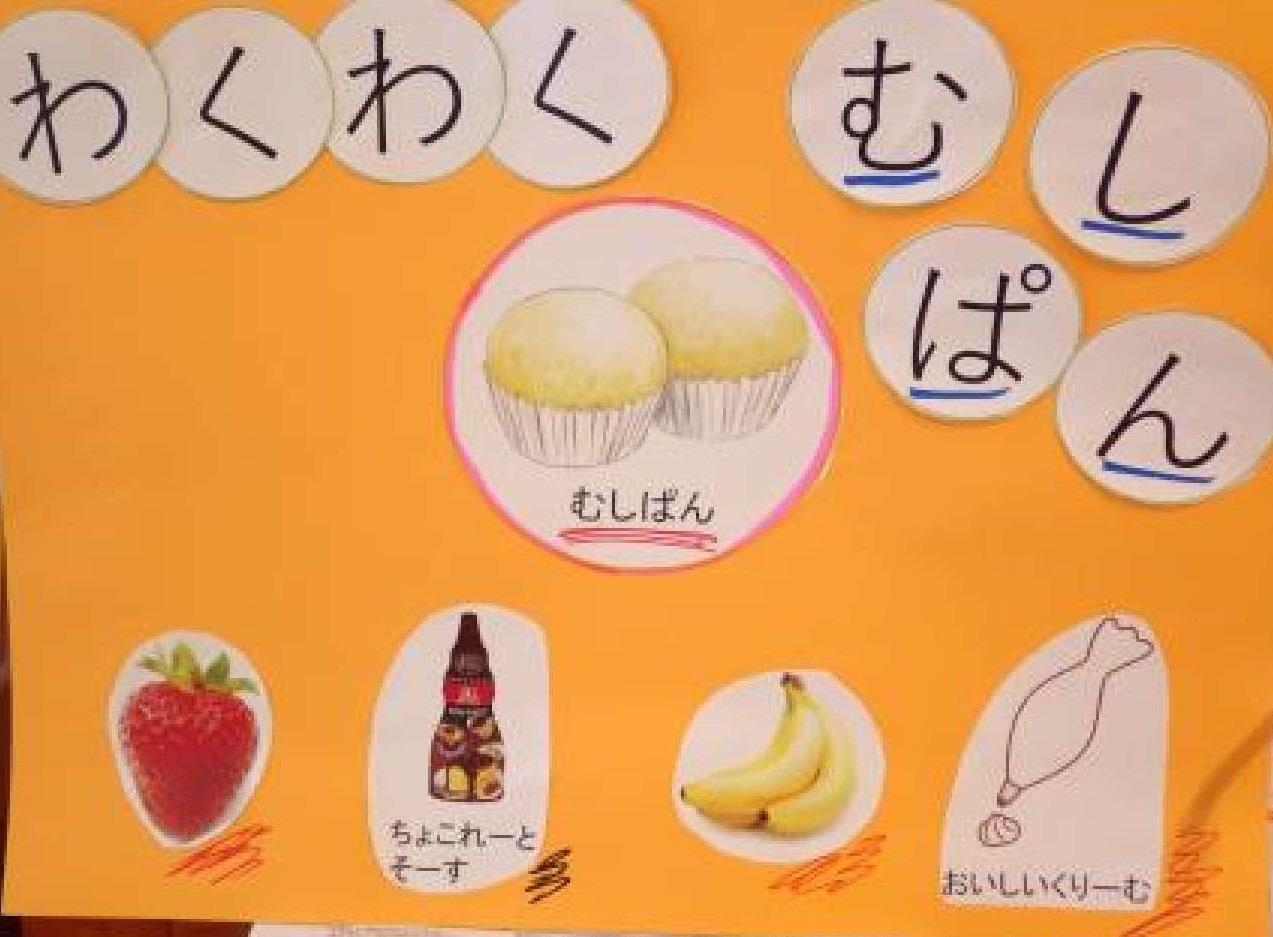 わくわく
むし
ぱん
むしぱん
ちょこれーと
そーす
おいしいくりーむ